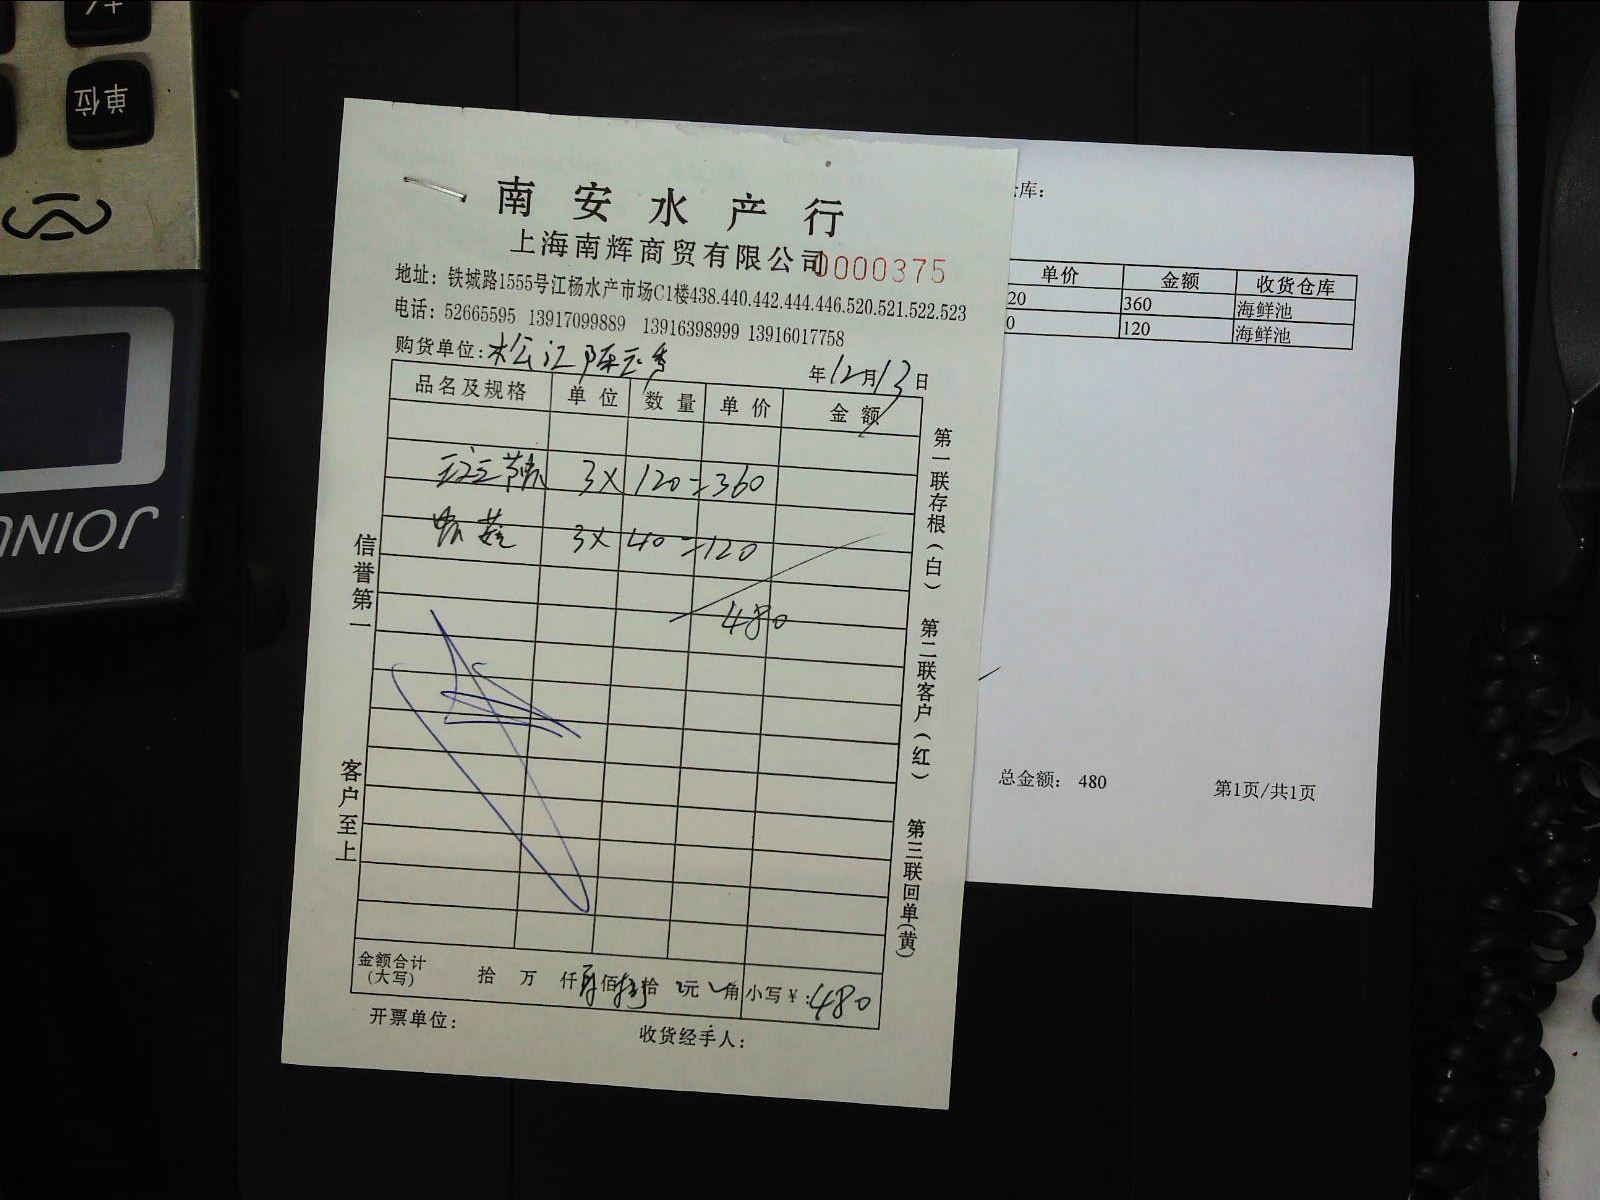 单位
JOINUS
南安水产行
上海南辉商贸有限公司
0000375
地址：铁城路1555号江杨水产市场C1楼438.440.442.444.446.520.521.522.523
电话：52665595 13917099889 13916398999 13916017758
购货单位：松江陈
年12月13日
品名及规格 单位 数量 单价 金额
3× 120=360
3× 40=120
480
金额合计(大写) 拾 万 仟 佰 拾 元 角 小写￥：480
开票单位： 收货经手人：
信誉第一 客户至上
第一联存根(白) 第二联客户(红) 第三联回单(黄)
库：
单价 金额 收货仓库
20 360 海鲜池
0 120 海鲜池
总金额： 480 第1页/共1页